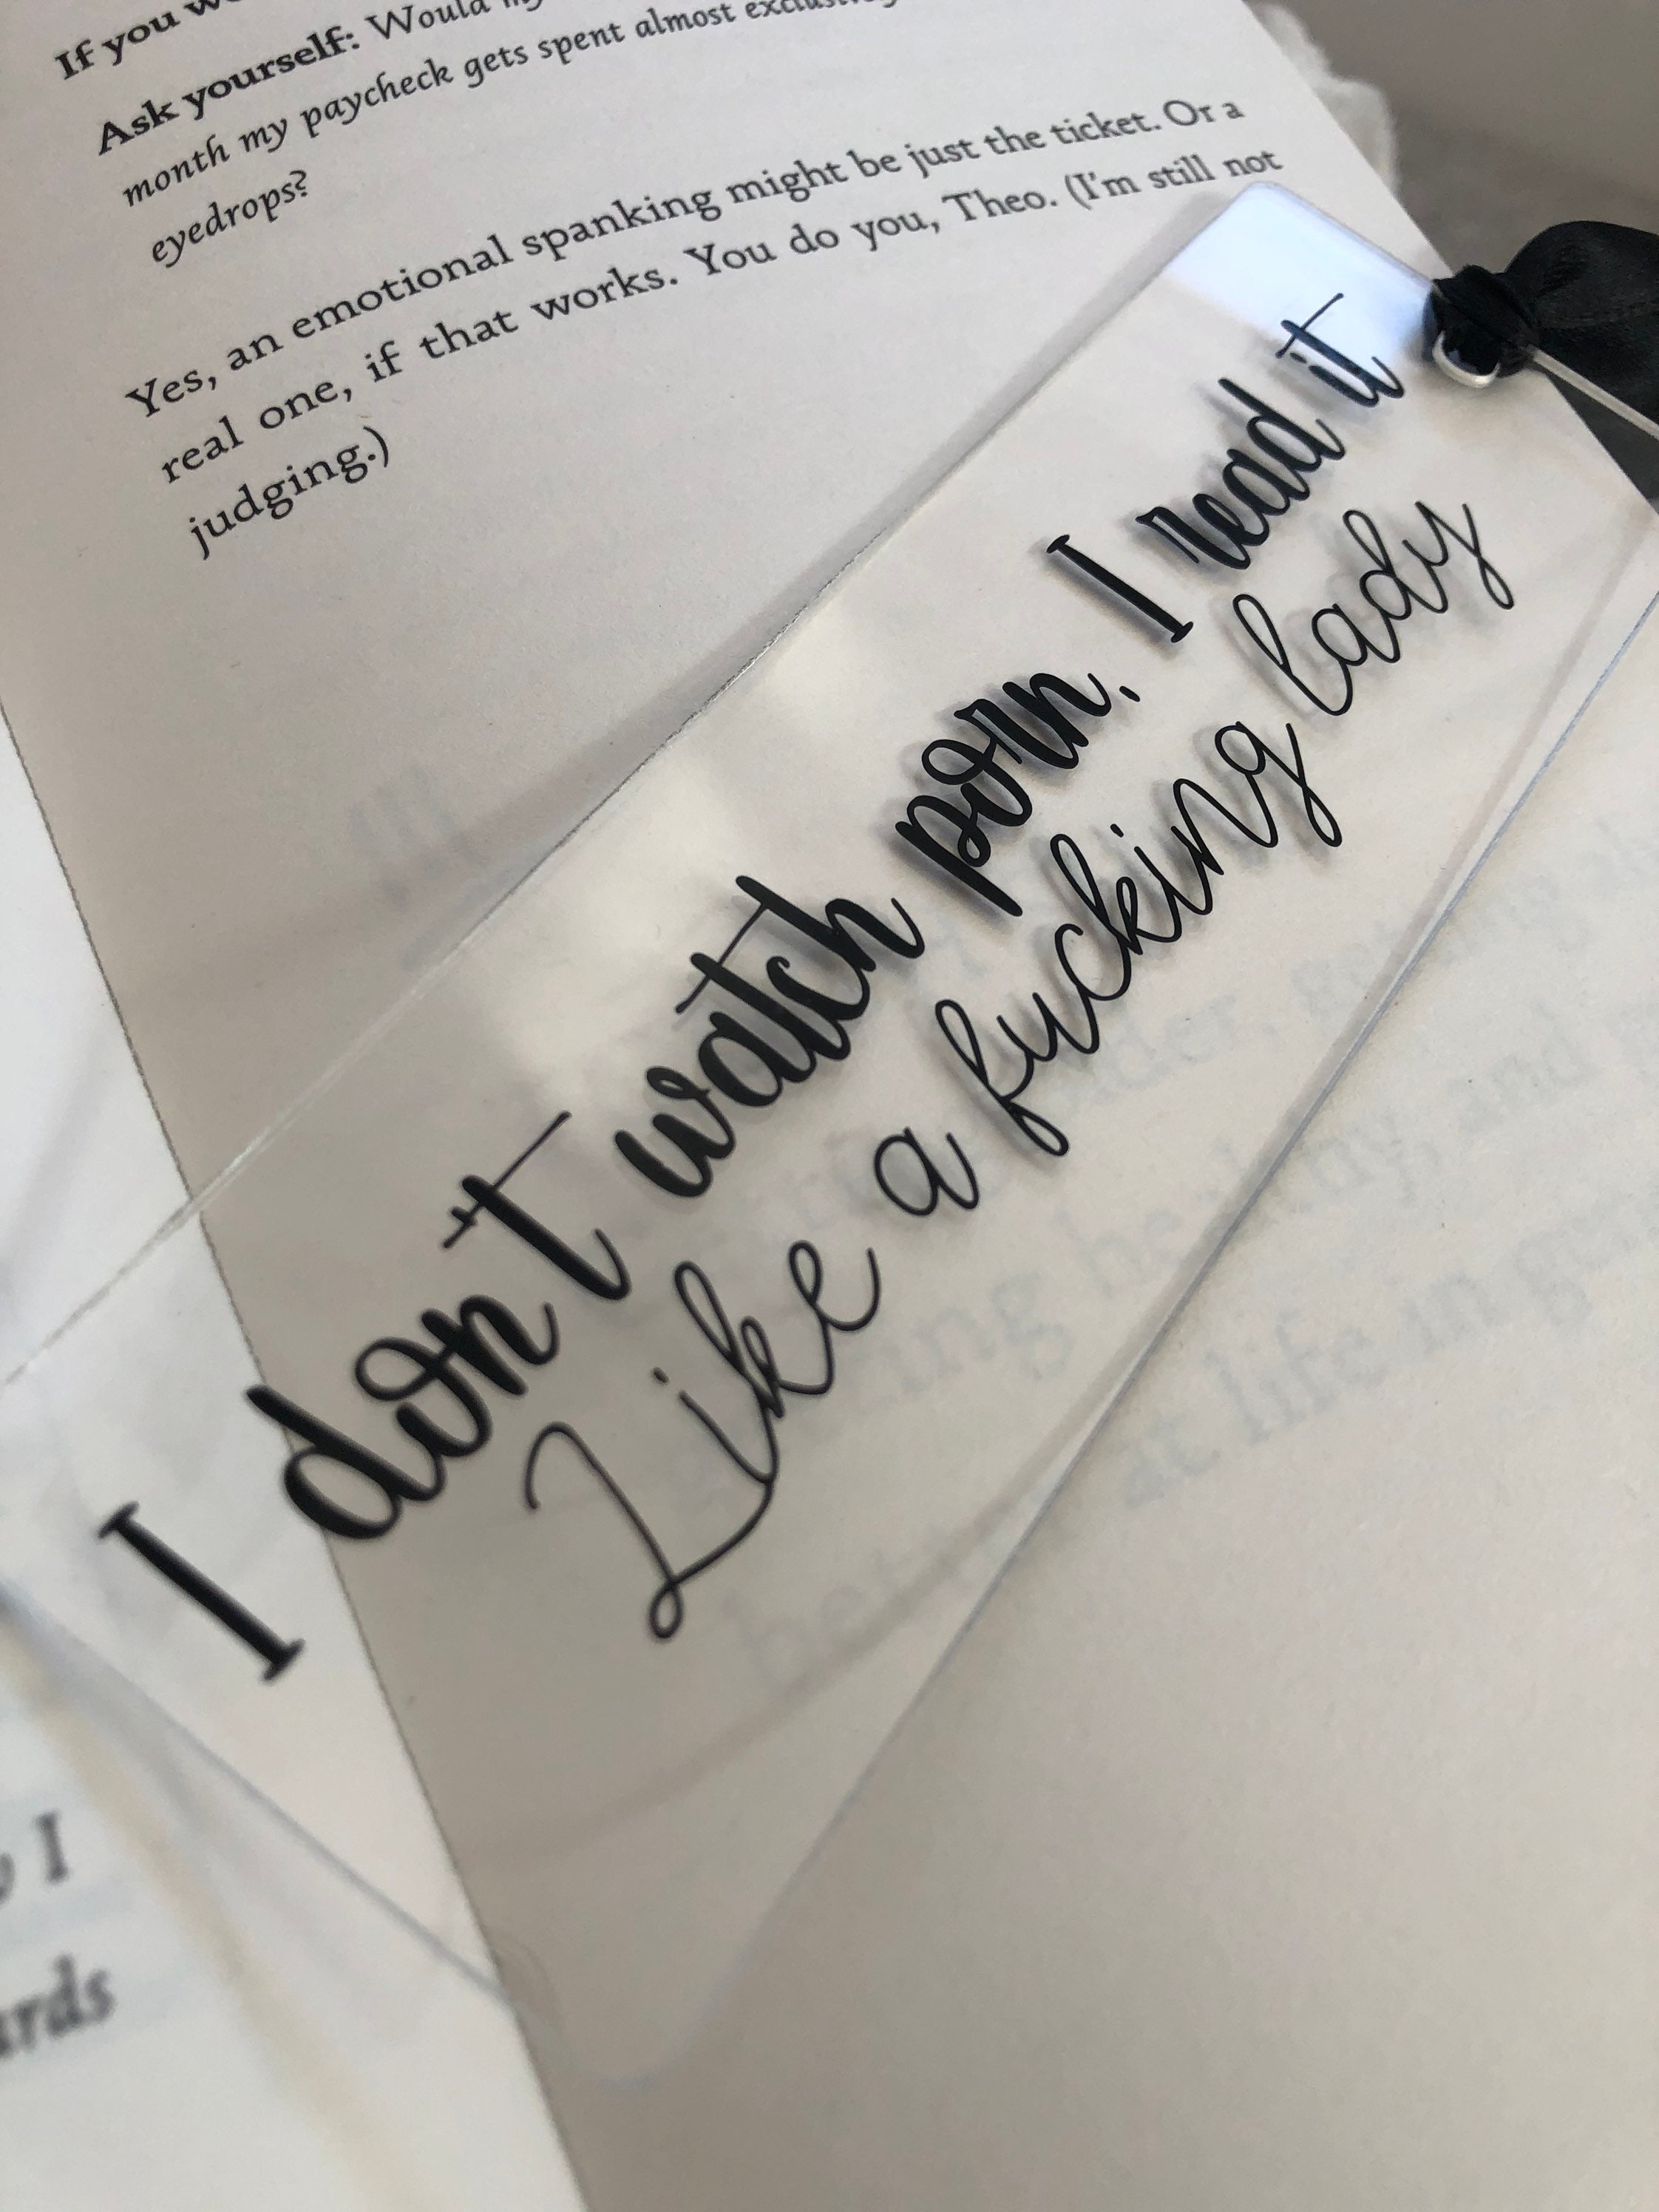 If you
Ask yourself: Would
month my paycheck gets spent almost
eyedrops?
Yes, an emotional spanking might be just the ticket. Or a
real one, if that works. You do you, Theo. (I'm still not
judging.)
I don't watch porn, I read it
Like a fucking lady
at life in
I